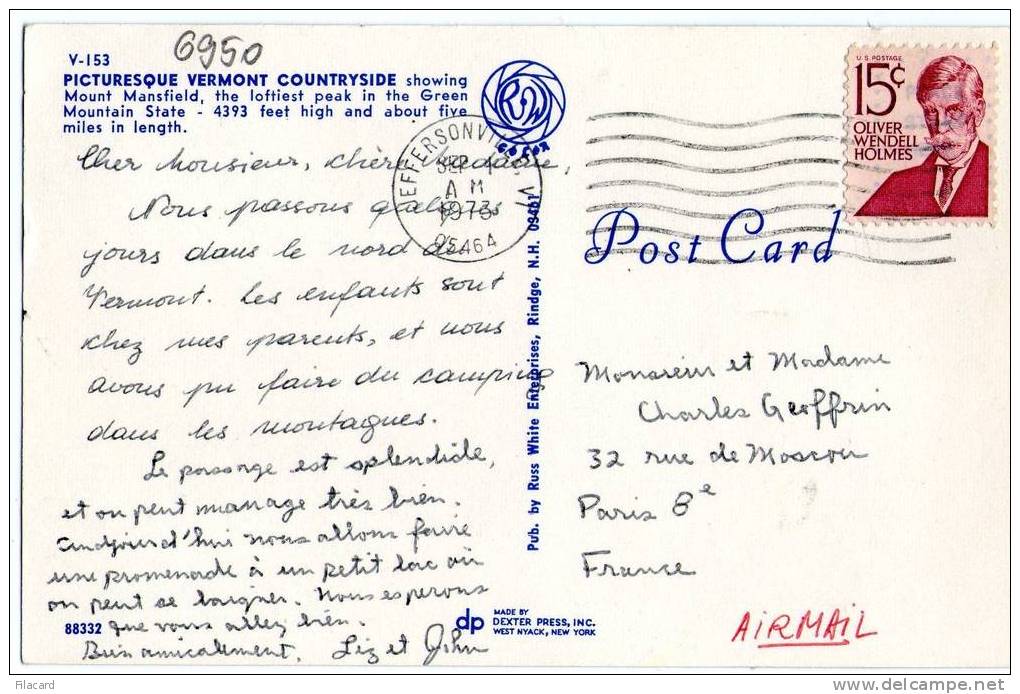 6950
V-153
PICTURESQUE VERMONT COUNTRYSIDE showing
Mount Mansfield, the loftiest peak in the Green
Mountain State - 4393 feet high and about five
miles in length.
Cher Monsieur, chère Madame,
Nous passons quelques
jours dans le nord du
Vermont. Les enfants sont
chez mes parents, et nous
avons pu faire du camping
dans les montagnes.
Le paysage est splendide,
et on peut manage très bien.
Aujourd'hui nous allons faire
une promenade à un petit lac où
on peut se baigner. Nous esperons
que vous allez bien.
Bien amicalement, Liz et John
88332
RW
COLOR
JEFFERSONVILLE VT
SEP
AM
1973
05464
Pub. by Russ White Enterprises, Rindge, N.H. 03461
dp MADE BY
DEXTER PRESS, INC.
WEST NYACK, NEW YORK
U.S. POSTAGE
15¢
OLIVER
WENDELL
HOLMES
Post Card
Monsieur et Madame
Charles Geoffrin
32 rue de Moscou
Paris 8e
France
AIRMAIL
Filacard
www.delcampe.net